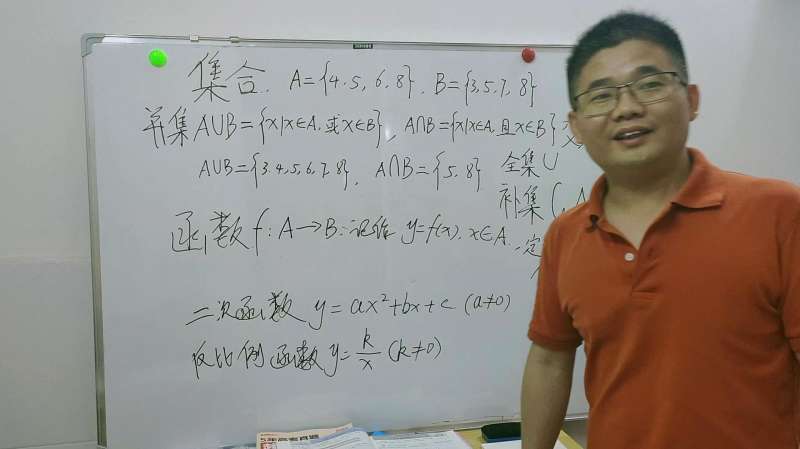 集合. A={4,5,6,8}. B={3,5,7,8}
并集 A∪B={x|x∈A, 或 x∈B}, A∩B={x|x∈A, 且 x∈B}
A∪B={3,4,5,6,7,8}, A∩B={5,8} 全集 U
补集
函数 f: A→B: 记作 y=f(x). x∈A
定
二次函数 y=ax²+bx+c (a≠0)
反比例函数 y=k/x (k≠0)